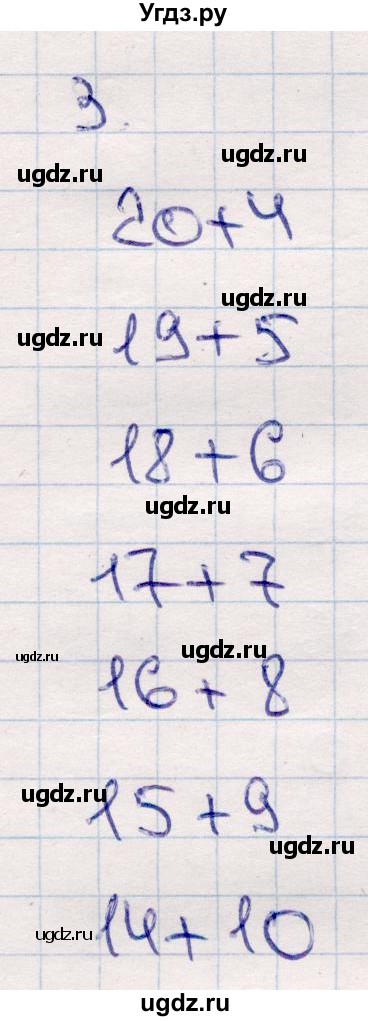 Угдз.ру
3.
ugdz.ru
ugdz.ru
20+4
ugdz.ru
19+5
ugdz.ru
18+6
ugdz.ru
17+7
ugdz.ru
ugdz.ru
16+8
ugdz.ru
15+9
ugdz.ru
14+10
ugdz.ru
ugdz.ru